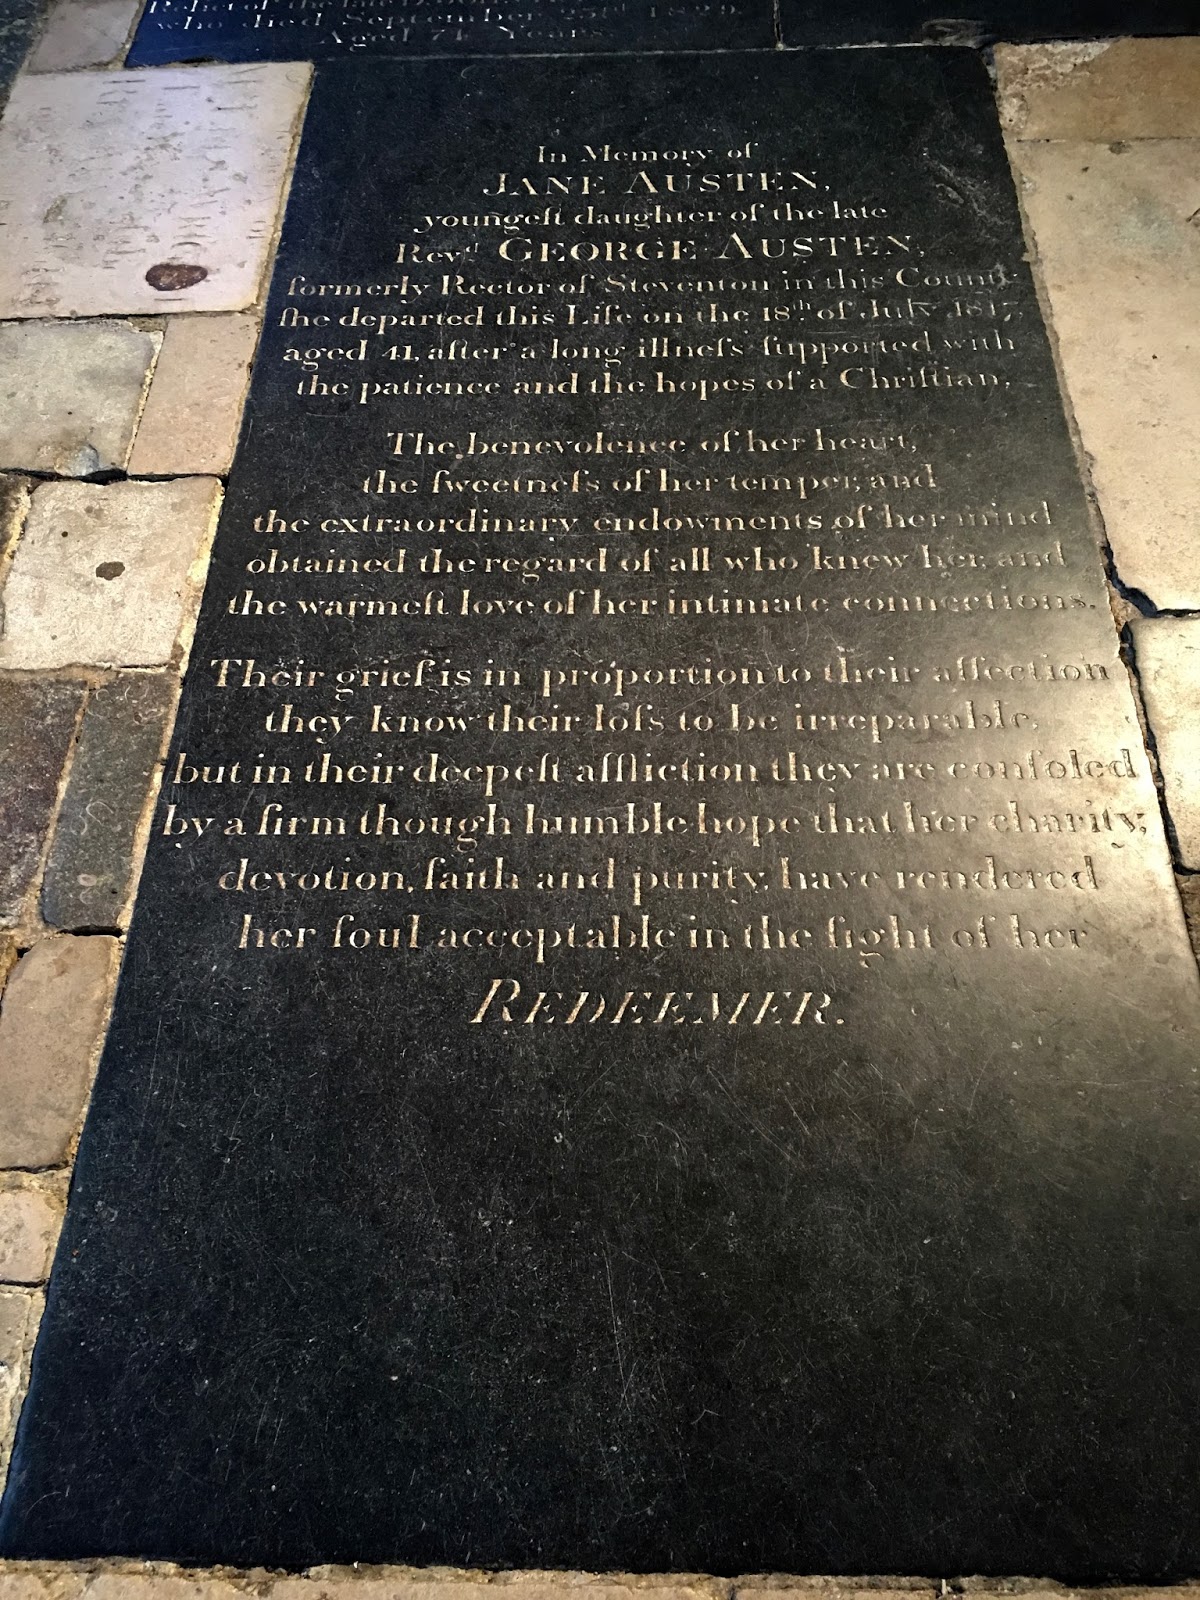 Relict of the late
who died September 23rd 1829.
Aged 74 Years.
In Memory of
JANE AUSTEN,
youngeſt daughter of the late
Revd. GEORGE AUSTEN,
formerly Rector of Steventon in this County
ſhe departed this Life on the 18th. of July 1817,
aged 41, after a long illneſs ſupported with
the patience and the hopes of a Chriſtian.
The benevolence of her heart,
the ſweetneſs of her temper, and
the extraordinary endowments of her mind
obtained the regard of all who knew her, and
the warmeſt love of her intimate connections.
Their grief is in proportion to their affection
they know their loſs to be irreparable,
but in their deepeſt affliction they are conſoled
by a firm though humble hope that her charity,
devotion, faith and purity, have rendered
her ſoul acceptable in the ſight of her
REDEEMER.